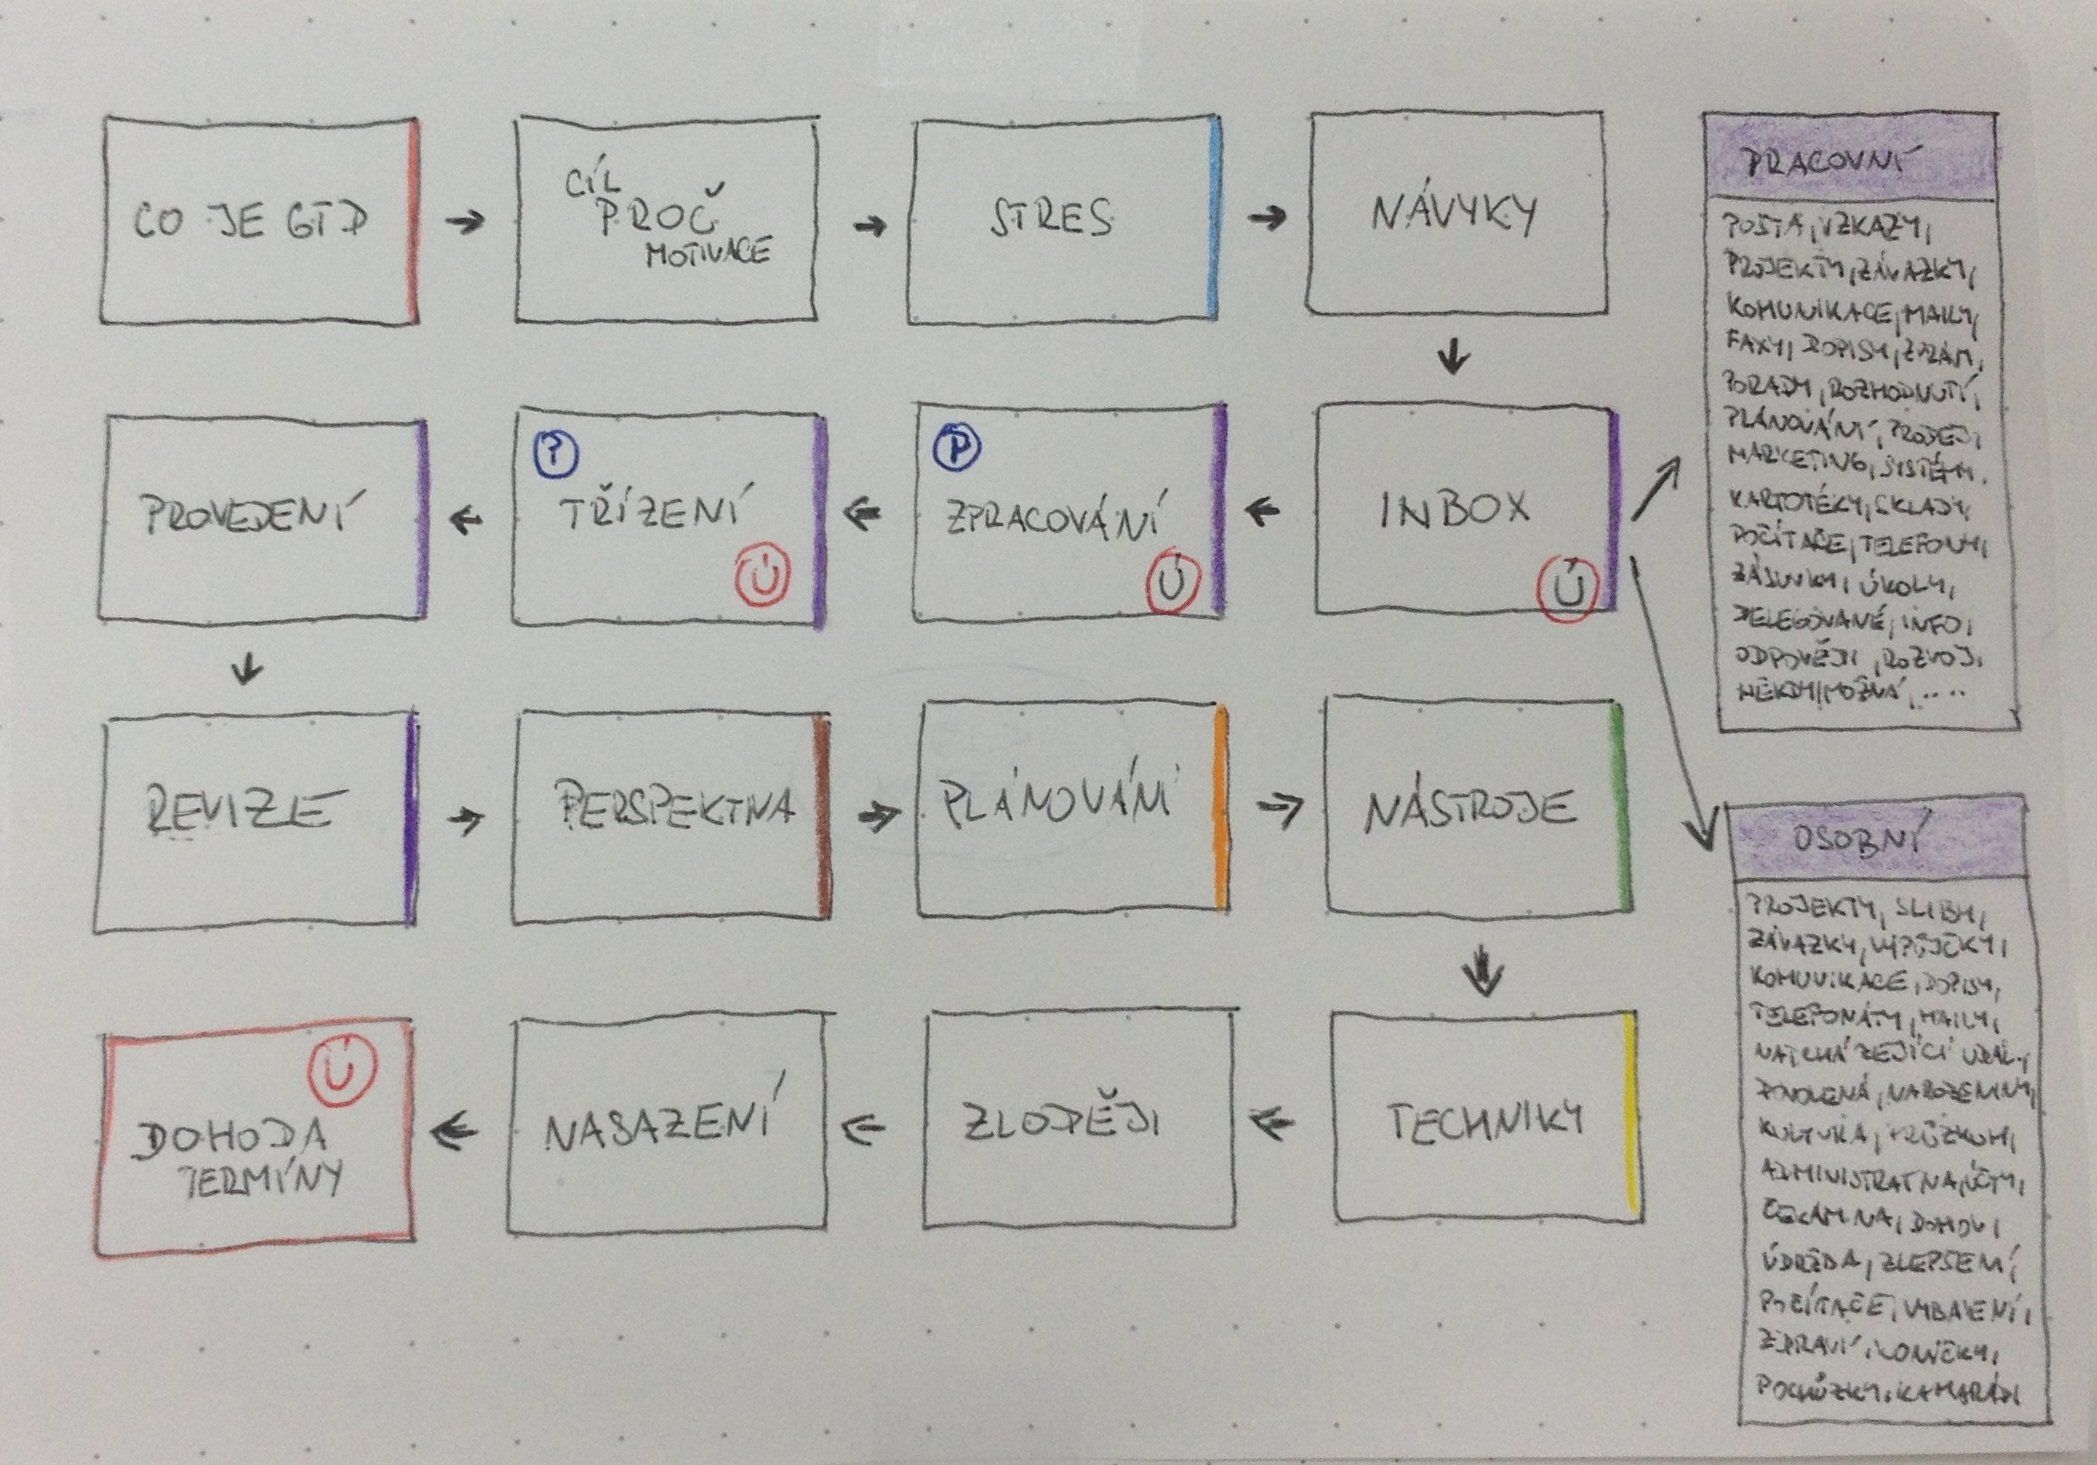 CO JE GTD
CÍL
PROČ
MOTIVACE
STRES
NÁVYKY
INBOX
Ú
P
ZPRACOVÁNÍ
Ú
?
TŘÍZENÍ
Ú
PROVEDENÍ
REVIZE
PERSPEKTIVA
PLÁNOVÁNÍ
NÁSTROJE
TECHNIKY
ZLODĚJI
NASAZENÍ
Ú
DOHODA
TERMÍNY
PRACOVNÍ
POŠTA, VZKAZY,
PROJEKTY, ZÁVAZKY,
KOMUNIKACE, MAILY,
FAXY, DOPISY,
PORADY, ROZHODNUTÍ,
PLÁNOVÁNÍ, PRODEJ,
MARKETING, SYSTÉM.
KARTOTÉKY, SKLADY,
POČÍTAČE, TELEFONY,
ZÁSUVKY, ÚKOLY,
DELEGOVANÉ, INFO,
ODPOVĚDI, ROZVOJ,
NĚKDY/MOŽNÁ, ....
OSOBNÍ
PROJEKTY, SLIBY,
ZÁVAZKY, VÝPŮJČKY,
KOMUNIKACE, DOPISY,
TELEFONÁTY, MAILY,
NADCHÁZEJÍCÍ UDÁL.,
DOVOLENÁ, NAROZENINY,
KULTURA, PRŮZKUM,
ADMINISTRATIVA, ÚČTY,
ČEKÁM NA, DOMOV,
ÚDRŽBA, ZLEPŠENÍ,
POČÍTAČE, VYBAVENÍ,
ZDRAVÍ, KONÍČKY,
POCHŮZKY, KAMARÁDI